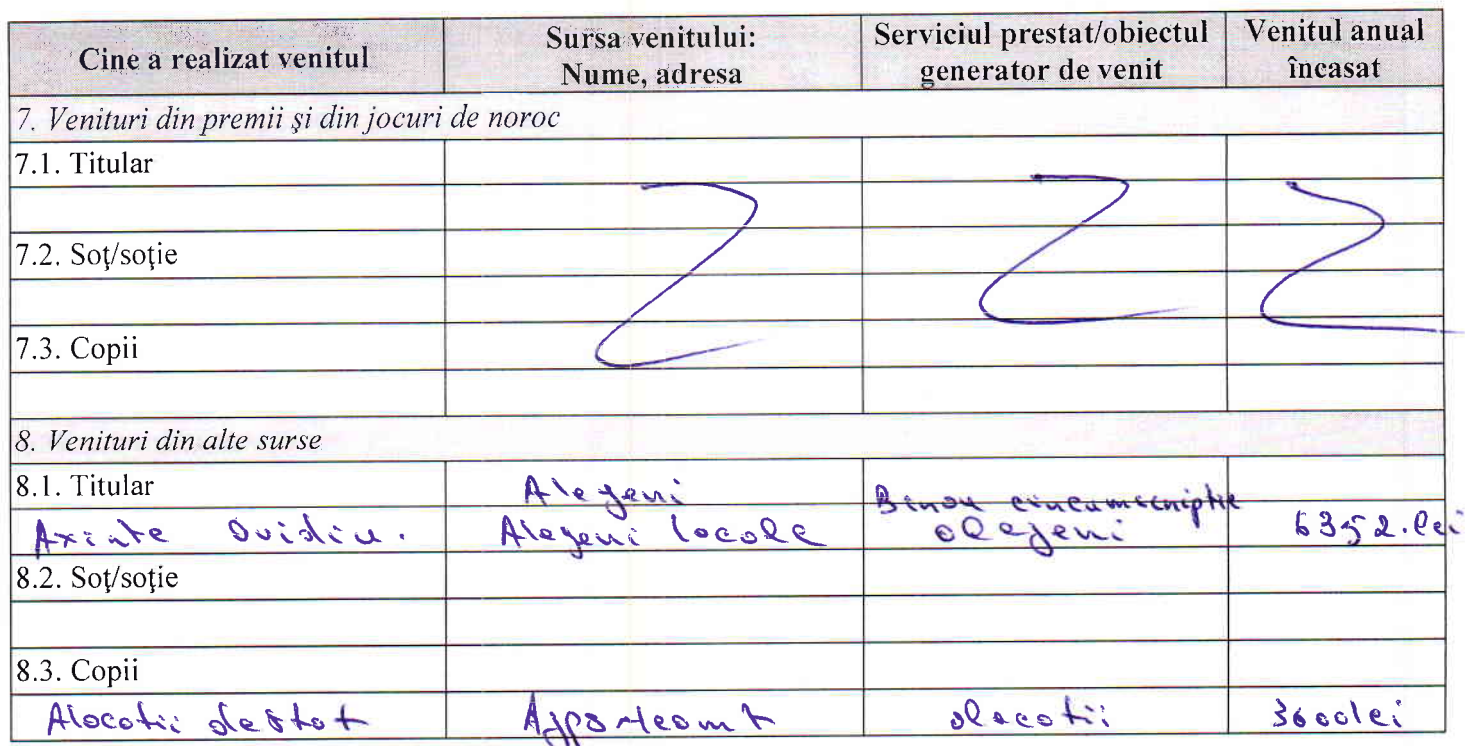 Cine a realizat venitul
Sursa venitului:
Nume, adresa
Serviciul prestat/obiectul
generator de venit
Venitul anual
încasat
7. Venituri din premii şi din jocuri de noroc
7.1. Titular
7.2. Soţ/soţie
7.3. Copii
8. Venituri din alte surse
8.1. Titular
Alegeri
Birou circumscriptie
Axinte Ovidiu.
Alegeri locale
alegeri
6352.lei
8.2. Soţ/soţie
8.3. Copii
Alocatii de stat
alocatii
3600lei